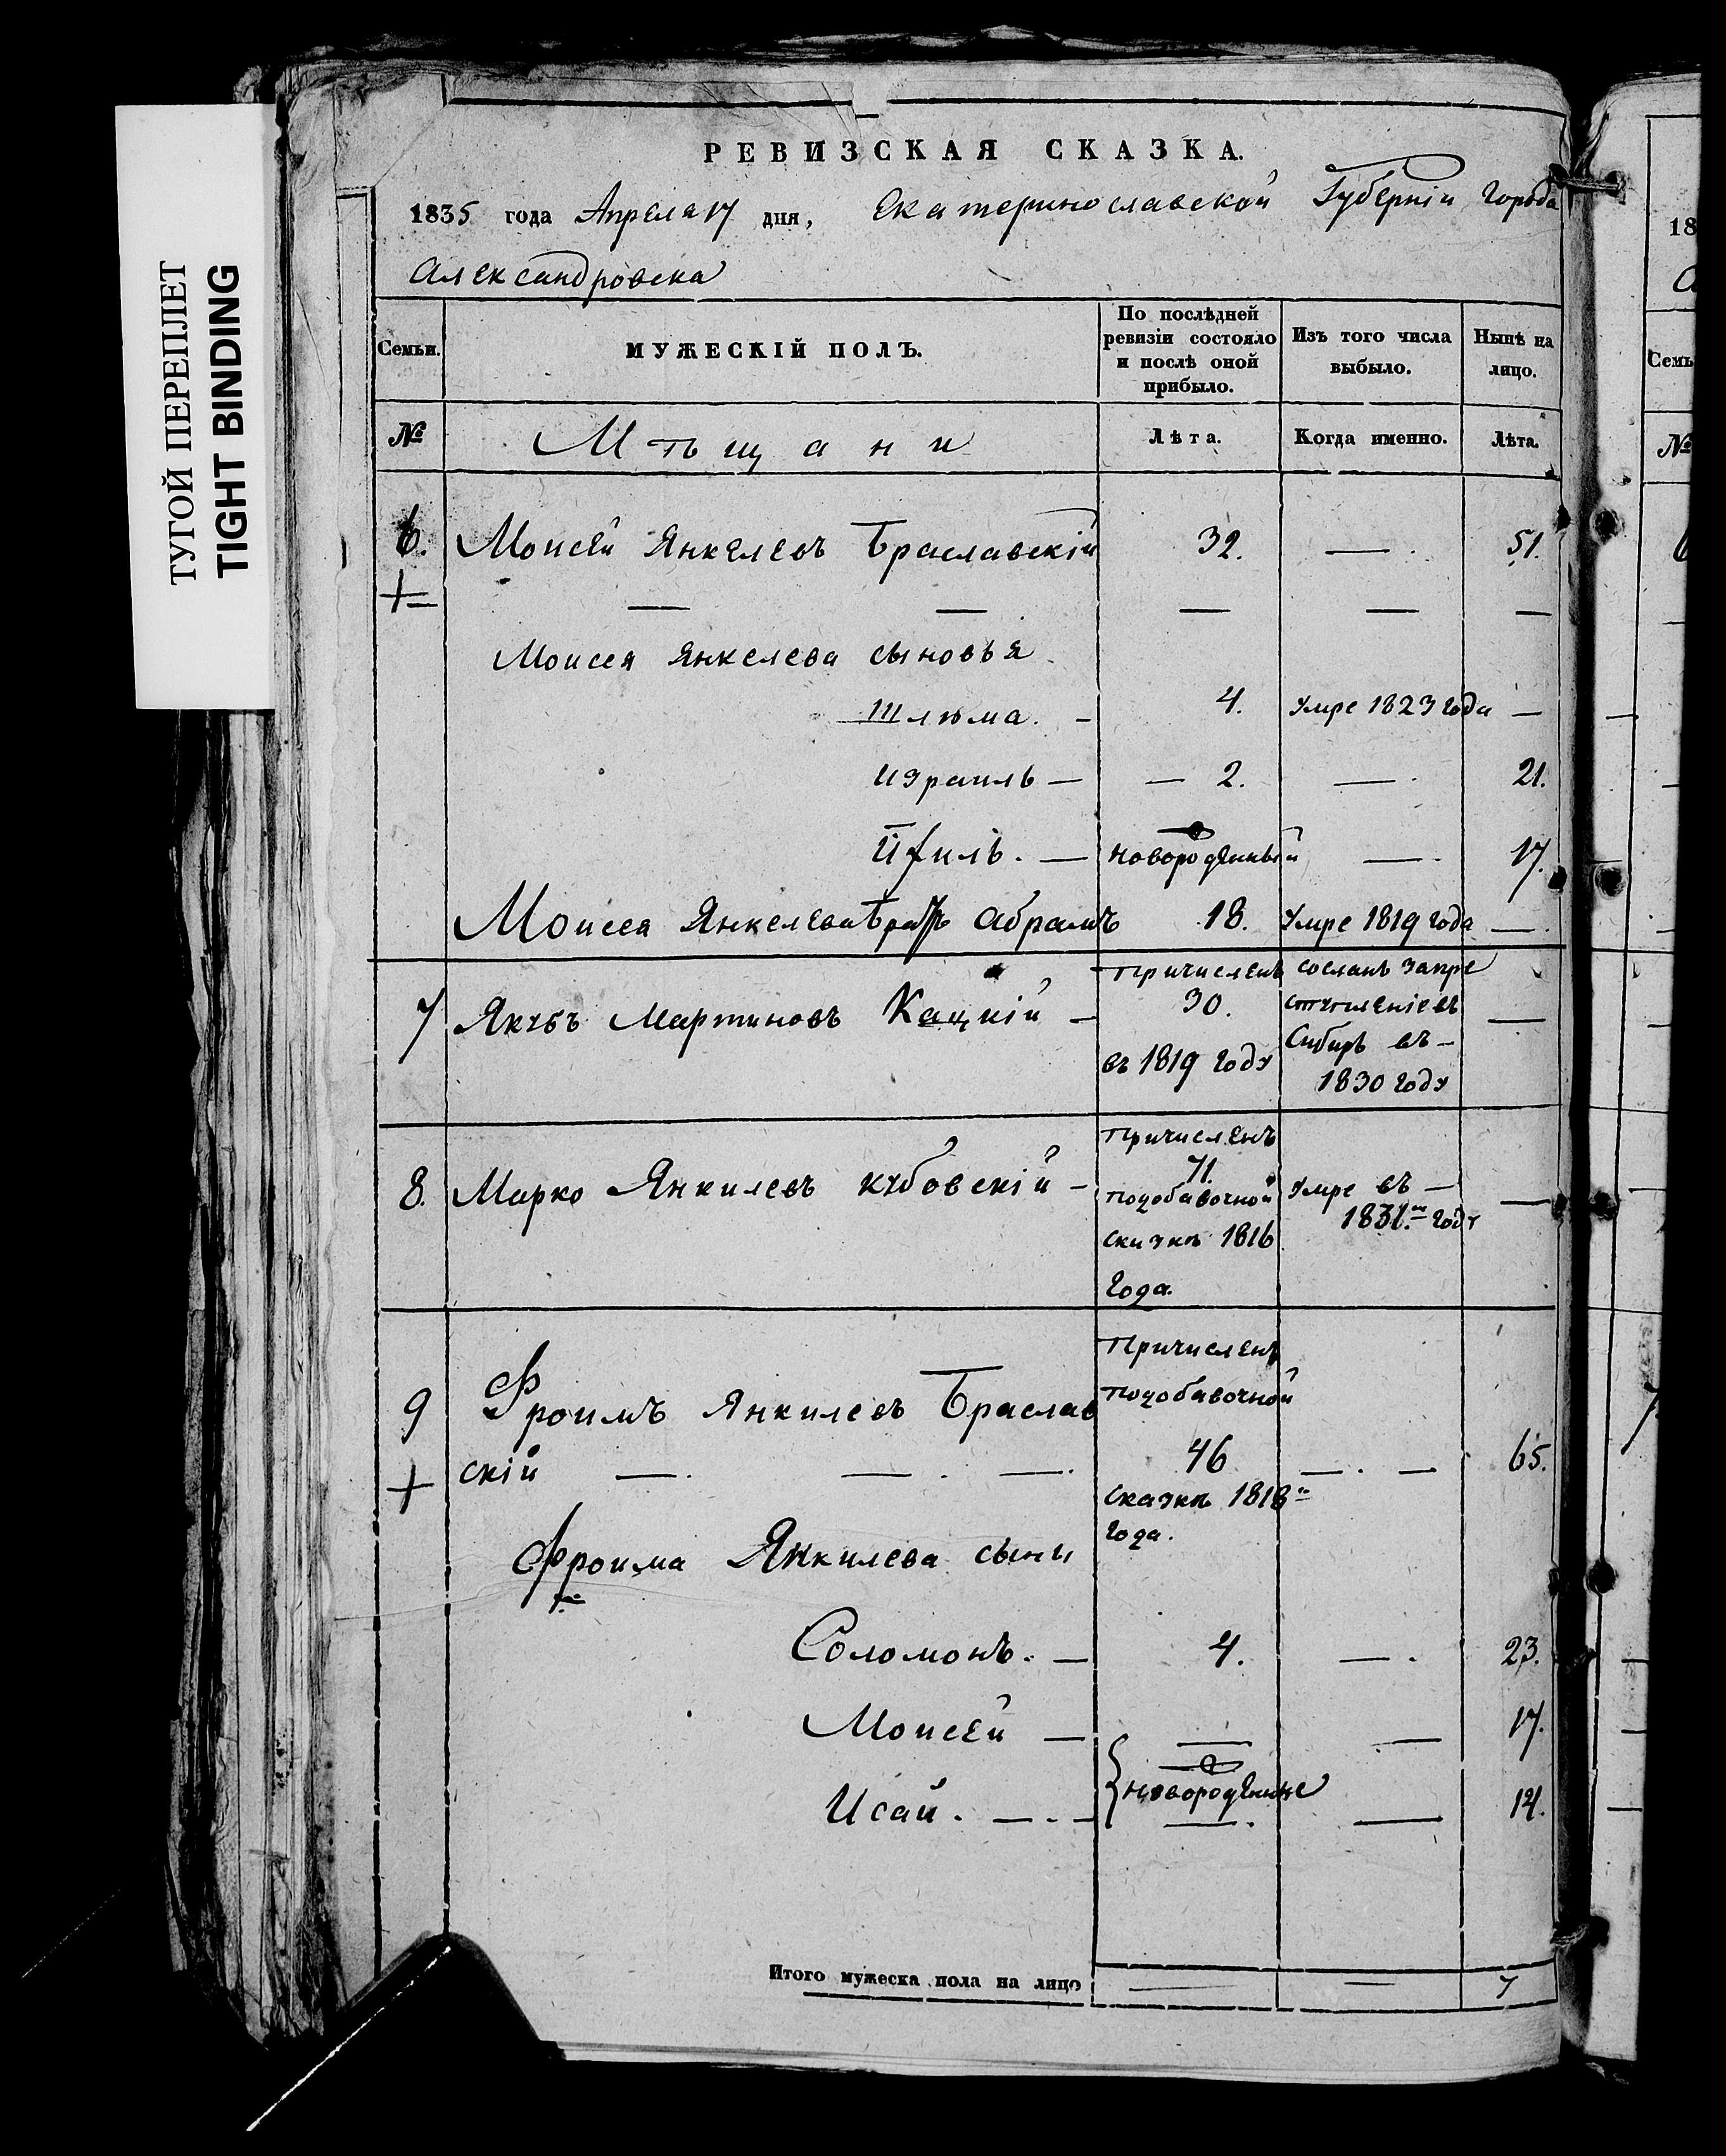 ТУГОЙ ПЕРЕПЛЕТ
TIGHT BINDING
РЕВИЗСКАЯ СКАЗКА.
1835 года Апреля 17 дня, Екатеринославской Губерніи Города
Александровска
Семьи. МУЖЕСКІЙ ПОЛЪ. По послѣдней ревизіи состояло и послѣ оной прибыло. Изъ того числа выбыло. Нынѣ на лицо.
№ Мѣщани Лѣта. Когда именно. Лѣта.
6. Моисей Янкелевъ Браславскій 32. — 51.
Моисея Янкелева сыновья
Шлюма. — 4. Умре 1823 года —
Израиль — — 2. — 21.
Новорожденный — 17.
Моисея Янкелева братъ Абрамъ 18. Умре 1819 года —
7 Якубъ Мартиновъ Кацкій — Причисленъ 30. въ 1819 году сосланъ запре ступленіе въ Сибирь въ — 1830 году —
8. Марко Янкилевъ Кубовскій — Причисленъ 71. подобавочной сказкѣ 1816 года. Умре въ — 1831.м году —
9 Фроимъ Янкилевъ Браслав Причисленъ подобавочной
скій — — — 46 — — 65.
сказкѣ 1818 года.
Фроима Янкилева сыны
Соломонъ. — 4. — 23.
Моисей — — — 17.
новорожденне
Исай. — — — 14.
Итого мужеска пола на лицо — — 7
18
Семь
№